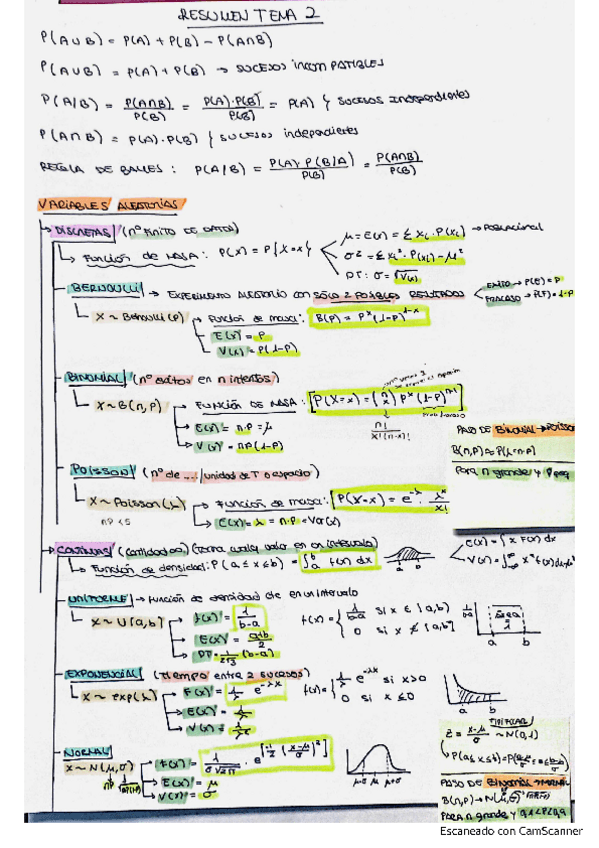 RESUMEN TEMA 2
P(A∪B) = P(A) + P(B) - P(A∩B)
P(A∪B) = P(A) + P(B) → SUCESOS INCOMPATIBLES
P(A/B) = P(A∩B)/P(B) = P(A)·P(B)/P(B) = P(A) } SUCESOS Independientes
P(A∩B) = P(A)·P(B) } SUCESOS independientes
REGLA DE BAYES : P(A/B) = P(A)·P(B/A)/P(B) = P(A∩B)/P(B)
VARIABLES ALEATORIAS
DISCRETAS (nº FINITO DE DATOS)
Función de MASA : P(x) = P{X=x}
μ = E(x) = Σ xi · P(xi) → Poblacional
σ² = Σ xi² · P(xi) - μ²
DT : σ = √V(x)
BERNOULLI → EXPERIMENTO ALEATORIO CON SÓLO 2 POSIBLES RESULTADOS
ÉXITO → P(E) = P
FRACASO → P(F) = 1-P
X ~ Bernoulli (p) → Función de masa : B(p) = P^x (1-p)^1-x
E(x) = P
V(x) = P(1-P)
BINOMIAL (nº éxitos en n intentos)
X ~ B(n,p) → FUNCIÓN DE MASA : P(X=x) = (n x) P^x (1-p)^n-x
n!/x!(n-x)!
E(x) = n·p = μ
V(x) = np(1-p)
PASO DE BINOMIAL → POISSON
B(n,p) ≈ P(λ=n·p)
Para n grande y p peq
POISSON (nº de .../unidad de T o espacio)
X ~ Poisson (λ) → Función de masa : P(X=x) = e^-λ · λ^x/x!
np < 5
E(x) = λ = n·p = Var(x)
CONTINUAS (cantidades) (toma cualq valor en un intervalo)
Función de densidad: P(a ≤ x ≤ b) = ∫ab f(x) dx
a b
E(x) = ∫ x f(x) dx
V(x) = ∫ x² f(x) dx - μ²
UNIFORME → Función de densidad de en un intervalo
X ~ U(a,b) → f(x) = 1/b-a
f(x) = { 1/b-a si x ∈ [a,b]
0 si x ∉ [a,b]
1/b-a
a b
E(x) = a+b/2
DT = 1/2√3 (b-a)
EXPONENCIAL (Tiempo entre 2 sucesos)
X ~ exp(λ) → F(x) = 1/λ e^-λx
f(x) = { 1/λ e^-λx si x>0
0 si x ≤ 0
a b
E(x) = 1/λ
V(x) = 1/λ²
NORMAL
X ~ N(μ,σ) → f(x) = 1/σ√2π · e^[-1/2 (x-μ/σ)²]
E(x) = μ
V(x) = σ
μ-σ μ μ+σ
TIPIFICAR
Z = x-μ/σ ~ N(0,1)
PASO DE BINOMIAL → NORMAL
B(n,p) → N(μ,σ)
PARA n grande y 0,1<P<0,9
Escaneado con CamScanner